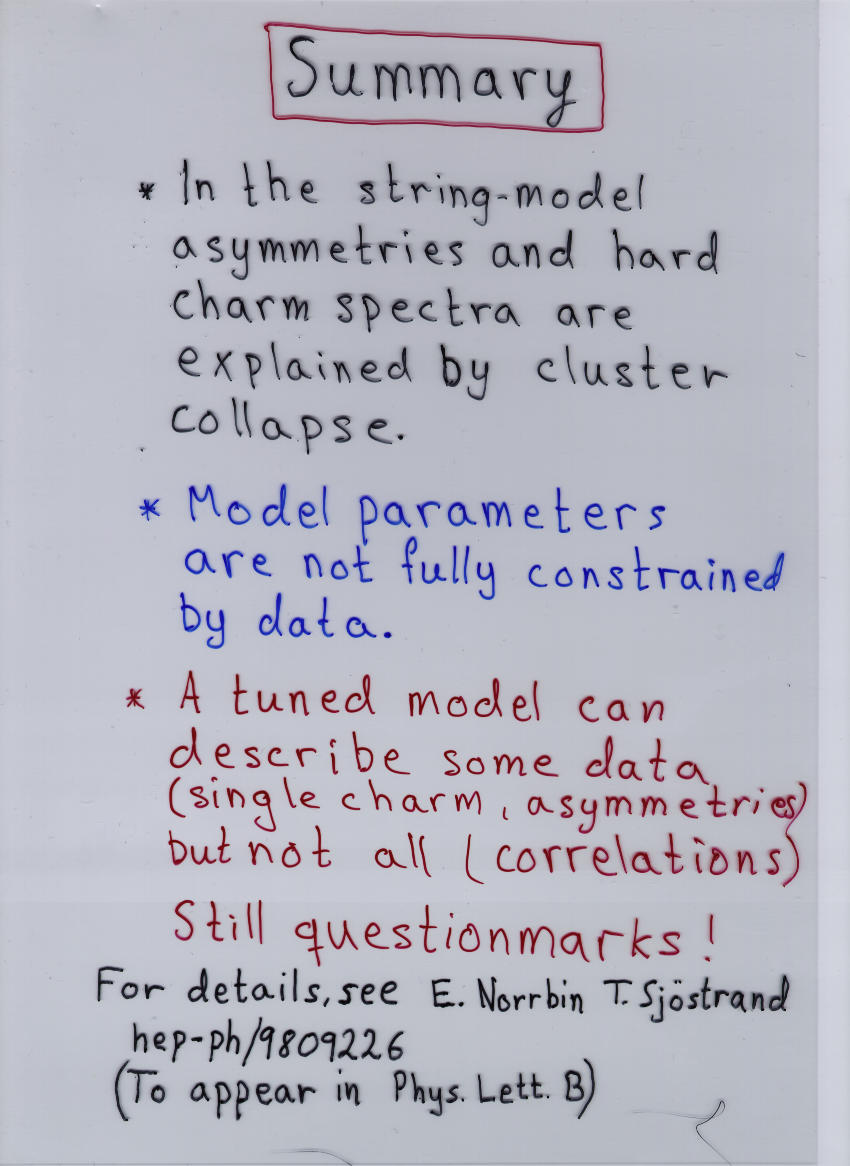 Summary
* In the string-model
asymmetries and hard
charm spectra are
explained by cluster
collapse.
* Model parameters
are not fully constrained
by data.
* A tuned model can
describe some data
(single charm, asymmetries)
but not all (correlations)
Still questionmarks!
For details, see E. Norrbin T. Sjöstrand
hep-ph/9809226
(To appear in Phys. Lett. B)